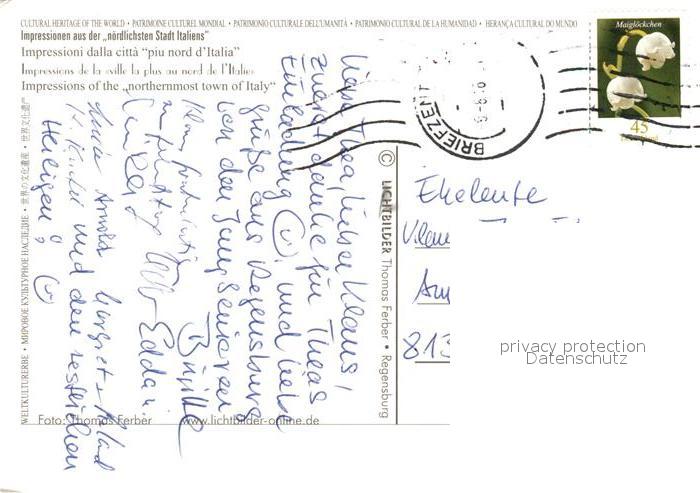 CULTURAL HERITAGE OF THE WORLD • PATRIMOINE CULTUREL MONDIAL • PATRIMONIO CULTURALE DELL'UMANITÀ • PATRIMONIO CULTURAL DE LA HUMANIDAD • HERANÇA CULTURAL DO MUNDO
Impressionen aus der „nördlichsten Stadt Italiens"
Impressioni dalla città "piu nord d'Italia"
Impressions de la «ville la plus au nord de l'Italie»
Impressions of the „northernmost town of Italy"
WELTKULTURERBE • МИРОВОЕ КУЛЬТУРНОЕ НАСЛЕДИЕ • 世界の文化遺産 • 世界文化遗产
Liebe Thea, lieber Klaus,
zuerst danke für Theas
Einladung und liebe
Grüße aus Regensburg
von den Jungsenioren
Brigitte
Edda
sowie Arnold Margret
und den restlichen
Heiligen!
Foto: Thomas Ferber www.lichtbilder-online.de
© LICHTBILDER Thomas Ferber • Regensburg
BRIEFZENT
Maiglöckchen
45
Eheleute
Klau
Am
813
privacy protection
Datenschutz